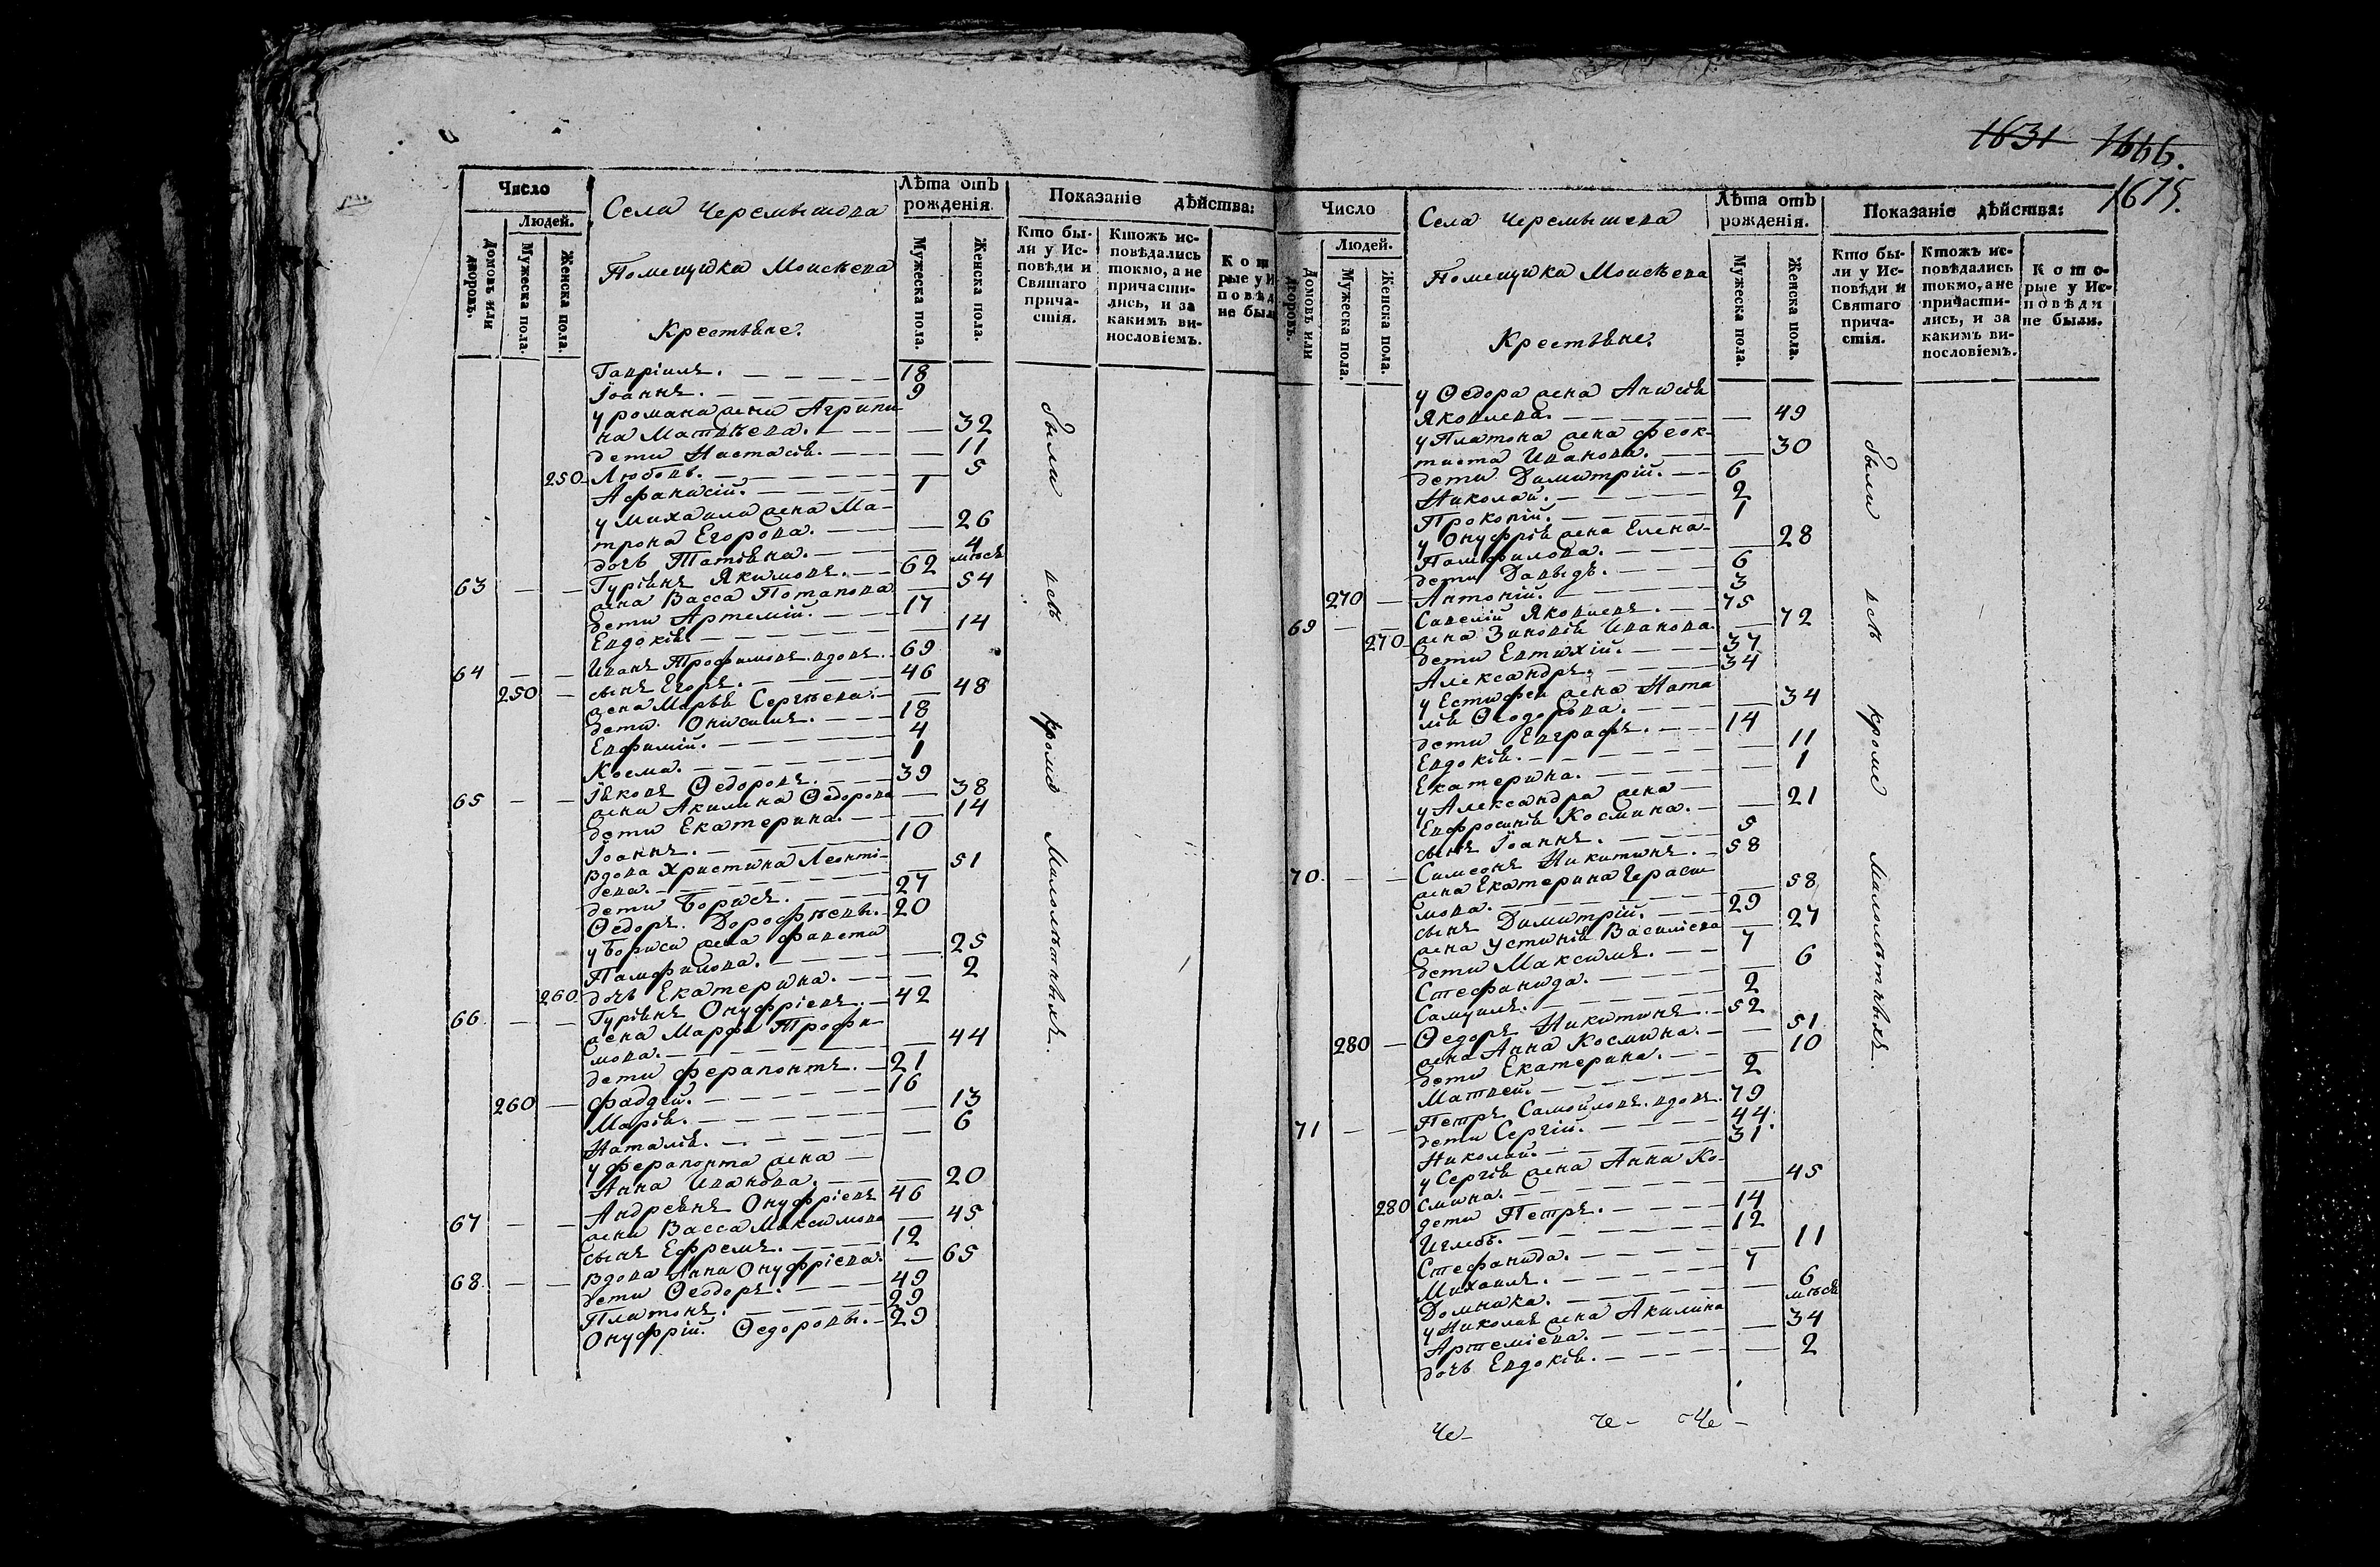 1631 1666.
1675.
Число
Людей.
Домовъ или дворовъ.
Мужеска пола.
Женска пола.
Села Черемышева
Помещика Мосѣева
Крестьяне.
Лѣта отъ рожденія.
Мужеска пола.
Женска пола.
Показаніе дѣйства:
Кто бы-
ли у Ис-
повѣди и
Святаго
прича-
стія.
Ктожъ ис-
повѣдались
токмо, а не
причасти-
лись, и за
какимъ ви-
нословіемъ.
Кото
рые у И
повѣд
не был
Гавріилъ. 18
Іоаннъ. 9
у романа жена Агрипи
на Матвѣева. 32
дети Настасія. 11
250 Любовь. 5
Афанасій. 1
у михаила жена Ма-
трона Егорова. 26
дочь Татіана. 4 мѣсѣ
63 Гуріянъ Якимовъ. 62
жена Васса Потапова 54
дети Артемій. 17
Евдокія. 14
64 Иванъ Трофимовъ вдовъ. 69
250 сынъ Егоръ. 46
жена Марья Сергѣева. 48
дети Онисимъ. 18
Евфимій. 4
Косма. 1
65 Іяковъ Ѳедоровъ. 39
жена Акилина Ѳедорова 38
дети Екатерина. 14
Іоаннъ. 10
вдова Христина Леонті-
ева. 51
дети Борисъ. 27
Ѳедоръ. Дорофѣевы. 20
у Бориса жена фавета
Памфилова. 25
260 дочь Екатерина. 2
66 Гуріянъ Онуфріевъ. 42
жена Марфа Трофи-
мова. 44
дети ферапонтъ. 21
260 Фаддей. 16
Марія. 13
Наталія. 6
у ферапонта жена
Анна Иванова. 20
67 Андреянъ Онуфріевъ 46
жена Васса Максимова 45
сынъ Ефремъ. 12
68 вдова Анна Онуфріева. 65
дети Ѳеодоръ. 49
Платонъ. 29
Онуфрій. Ѳедоровы. 29
были всѣ кроме малолѣтныхъ.
Число
Людей.
Домовъ или дворовъ.
Мужеска пола.
Женска пола.
Села Черемышева
Помещика Мосѣева
Крестьяне.
Лѣта отъ рожденія.
Мужеска пола.
Женска пола.
Показаніе дѣйства:
Кто бы-
ли у Ис-
повѣди и
Святаго
прича-
стія.
Ктожъ ис-
повѣдались
токмо, а не
причасти-
лись, и за
какимъ ви-
нословіемъ.
Кото-
рые у Ис-
повѣди
не были.
у Ѳедора жена Анисія
Яковлева. 49
у Платона жена феок-
тиста Иванова. 30
дети Димитрій. 6
Николай. 2
Прокопій. 1
у Онуфрія жена Елена
Памфилова. 28
дети Давыдъ. 6
270 Антоній. 3
69 Савелій Яковлевъ. 75
270 жена Зиновія Иванова. 72
дети Евтихій. 37
Александръ. 34
у Естифея жена Ната
лія Ѳеодорова. 34
дети Евграфъ. 14
Евдокія. 11
Екатерина. 1
у Александра жена
Евфросинія Космина. 21
сынъ Іоаннъ. 5
70. Симеонъ Никитинъ. 58
жена Екатерина Гераси
мова. 58
сынъ Димитрій. 29
жена Устинія Василіева 27
дети Максимъ. 7
Стефанида. 6
Самуилъ. 2
280 Ѳедоръ Никитинъ. 52
жена Анна Космина. 51
дети Екатерина. 10
Матвей. 2
71 Петръ Самойловъ вдовъ. 79
дети Сергій. 44
Николай. 31
у Сергія жена Анна Ко-
280 смина. 45
дети Петръ. 14
Иглебъ. 12
Стефанида. 11
Михаилъ. 7
Домника. 6 мѣсѣ
у Николая жена Акилина
Артеміева. 34
дочь Евдокія. 2
были всѣ кроме малолѣтныхъ.
Че- че- Че-